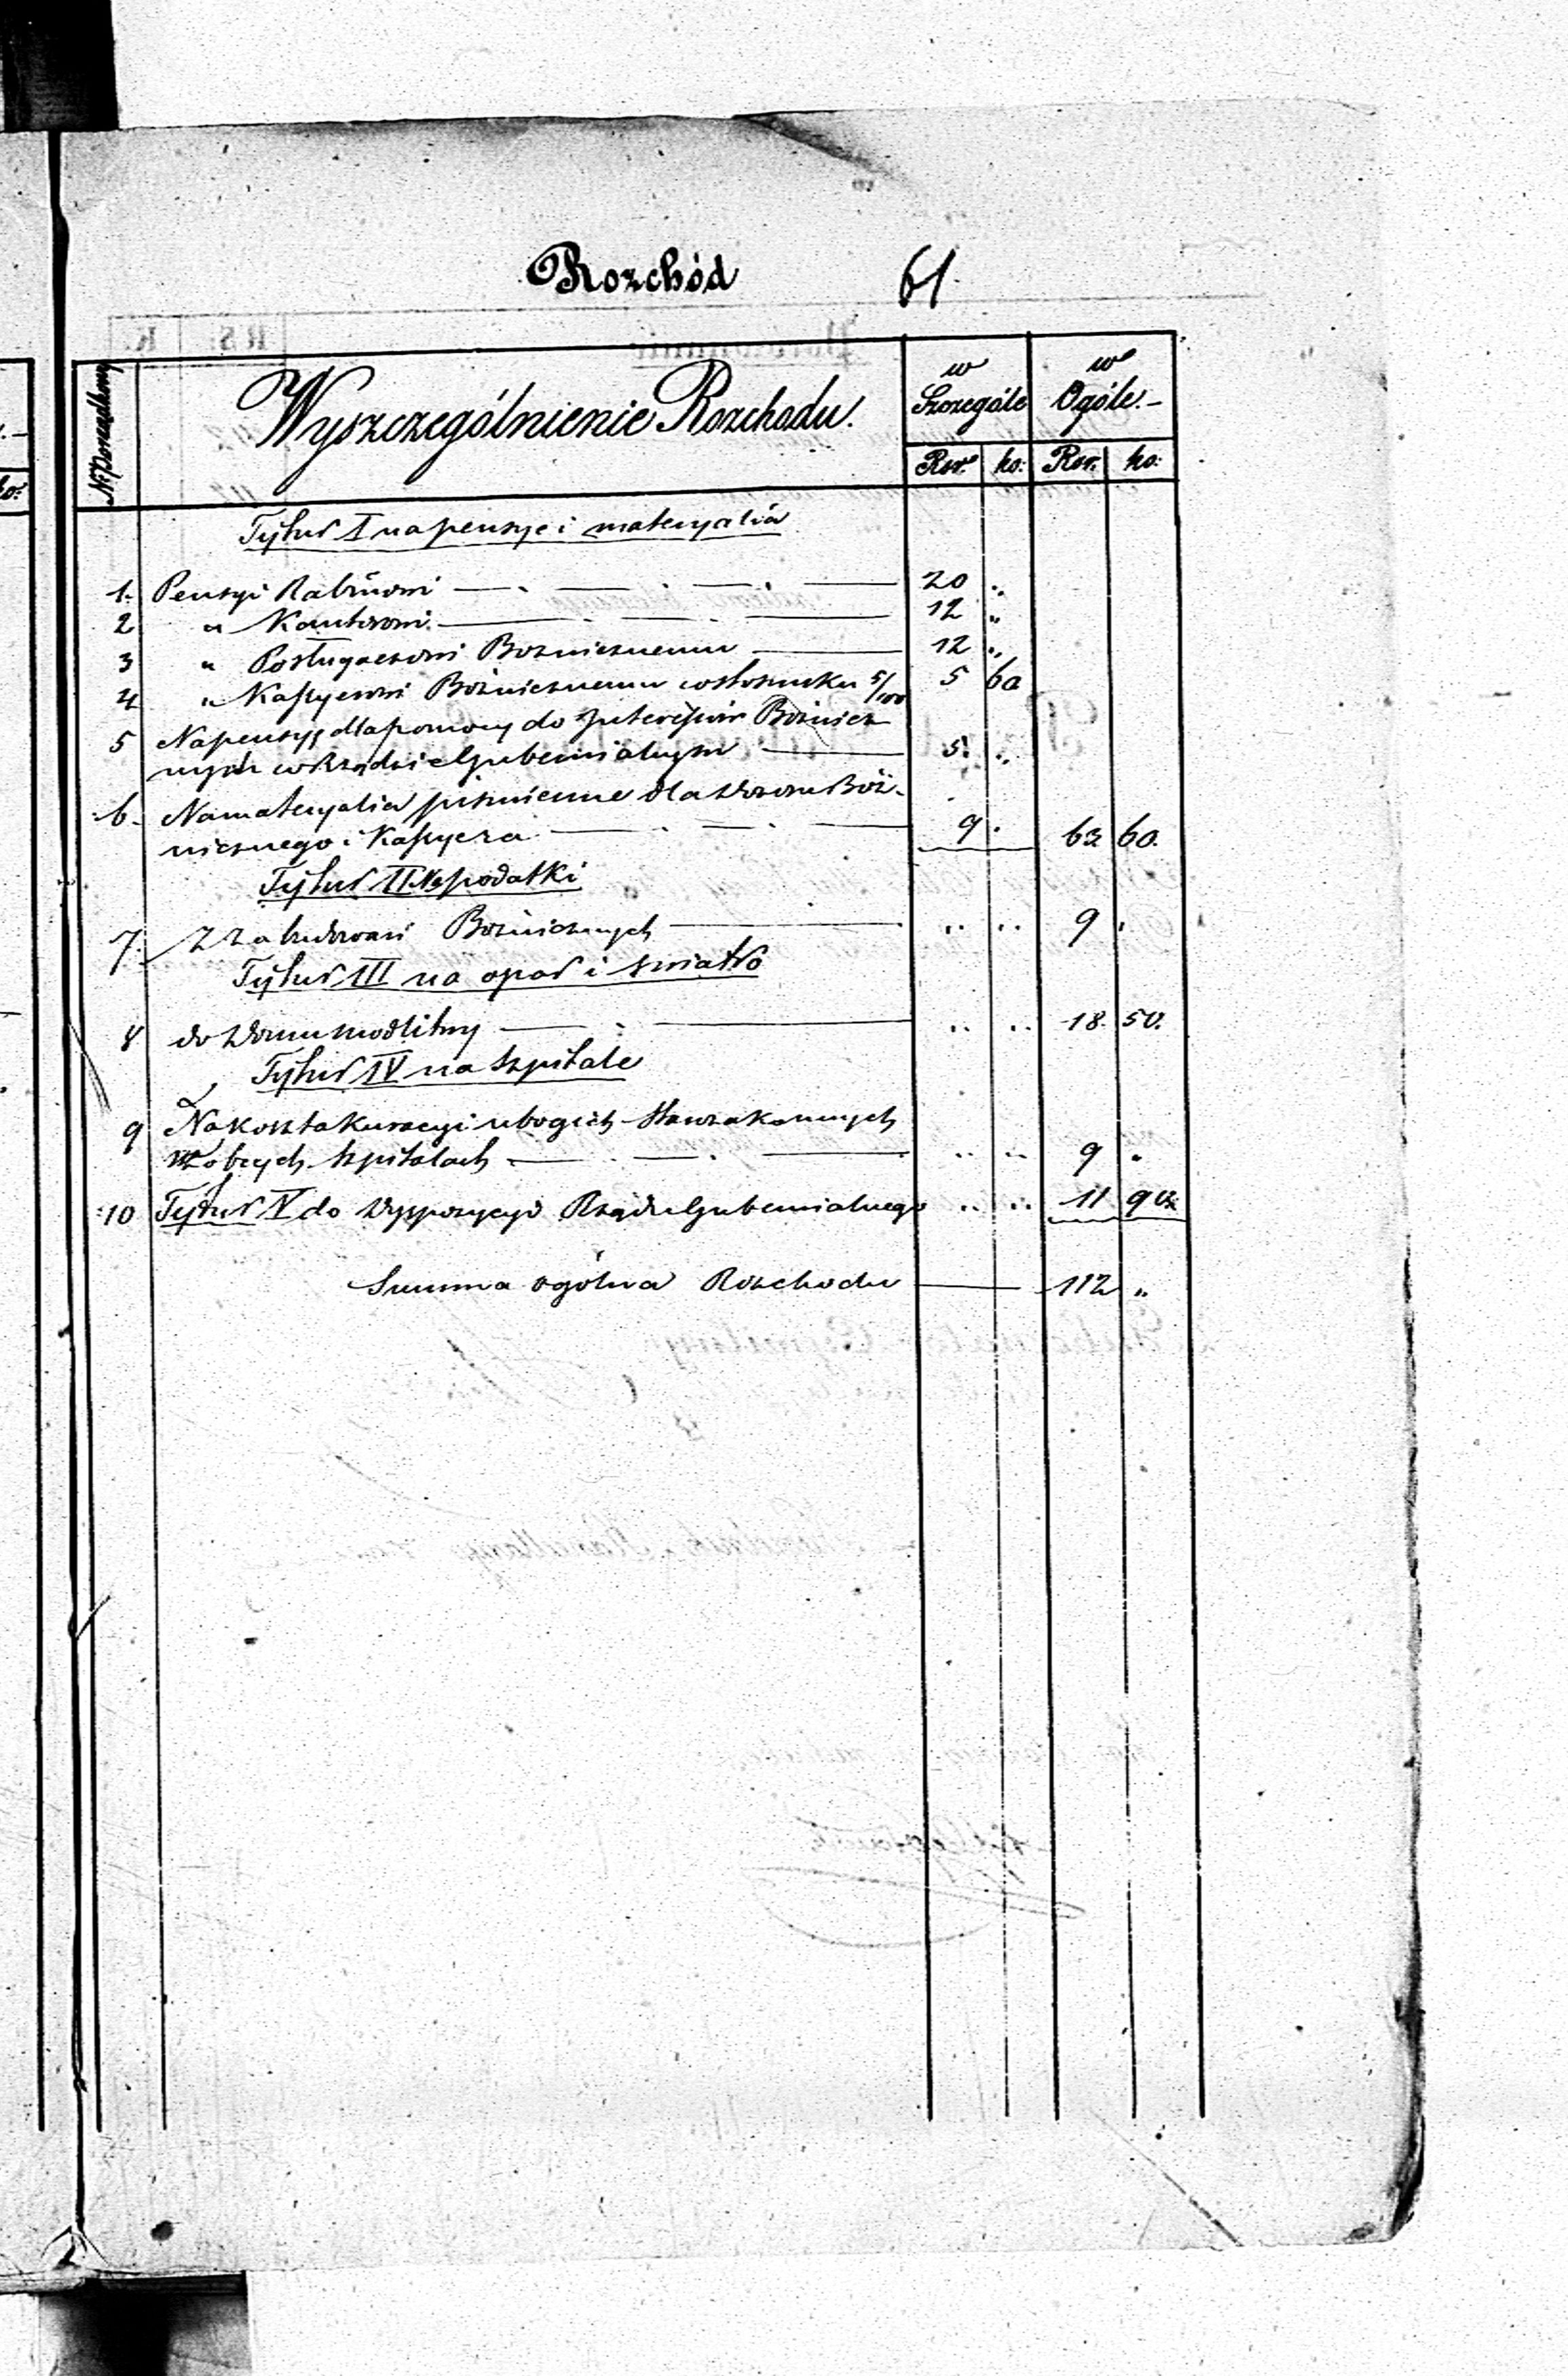 Rozchód 61.
№ Porządkowy Wyszczególnienie Rozchodu. w Szczególe w Ogóle.-
Rsr. ko: Rsr. ko:
Tytuł I na pensye i materyalia
1. Pensyi Rabinowi 20 "
2 " Kantorowi 12 "
3 " Posługaczowi Bożnicznemu 12 "
4 " Kassyerowi Bożnicznemu w stosunku 5/100 5 60
5 Na pensyę dla pomocy do Interesów Bożnicz
nych w Rządzie Gubernialnym 5 "
6. Na materyalia piśmienne dla Dozoru Boż-
nicznego i Kassyera 9 . 63 60.
Tytuł II Na podatki
7. Z zabudowań Bożnicznych " " 9 .
Tytuł III na opał i światło
8 do Domu modlitwy " " 18. 50.
Tytuł IV na szpitale
9 Na koszta kuracyi ubogich Starozakonnych
w obcych szpitalach " " 9 "
10 Tytuł V do dyspozycyi Rządu Gubernialnego " " 11 90
Summa ogólna Rozchodu 112 "